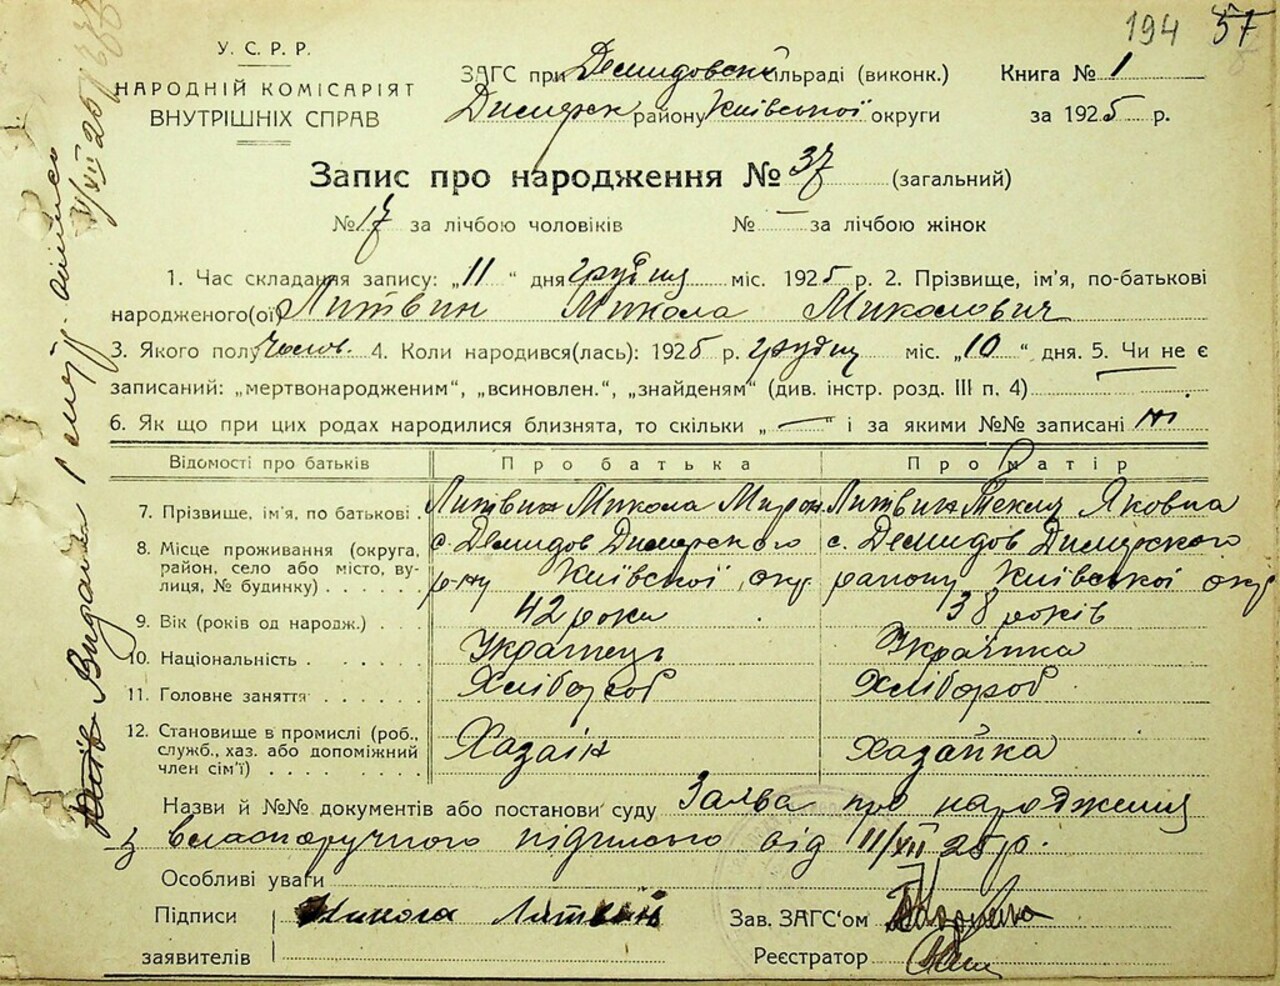 194 57
У. С. Р. Р.
НАРОДНІЙ КОМІСАРІЯТ
ВНУТРІШНІХ СПРАВ
ЗАГС при Демидовскій сільраді (виконк.)
Димерск району Київської округи
Книга № 1
за 1925 р.
Запис про народження № 37 (загальний)
№ 17 за лічбою чоловіків № — за лічбою жінок
1. Час складання запису: „11“ дня грудня міс. 1925 р. 2. Прізвище, ім'я, по-батькові
народженого(ої) Литвин Микола Миколович
3. Якого полу Чолов. 4. Коли народився(лась): 1925 р. грудня міс. „10“ дня. 5. Чи не є
записаний: „мертвонародженим“, „всиновлен.“, „знайденям“ (див. інстр. розд. III п. 4)
6. Як що при цих родах народилися близнята, то скільки „—“ і за якими №№ записані
Відомості про батьків Про батька Про матір
7. Прізвище, ім'я, по батькові Литвин Микола Мирон. Литвин Текля Яковна
8. Місце проживання (округа, с. Демидов Димерского с. Демидов Димерского
район, село або місто, вулиця, № будинку) р-ну Київскої окр. району Київської окр
9. Вік (років од народж.) 42 роки 38 років
10. Національність Українець Українка
11. Головне заняття Хлібороб Хлібороб
12. Становище в промислі (роб., служб., хаз. або допоміжний член сім'ї) Хазаін Хазайка
Назви й №№ документів або постанови суду Заява про народження
з власноручного підписью від 11/XII 25 р.
Особливі уваги
Підписи Микола Литвин Зав. ЗАГС'ом
заявителів Реєстратор